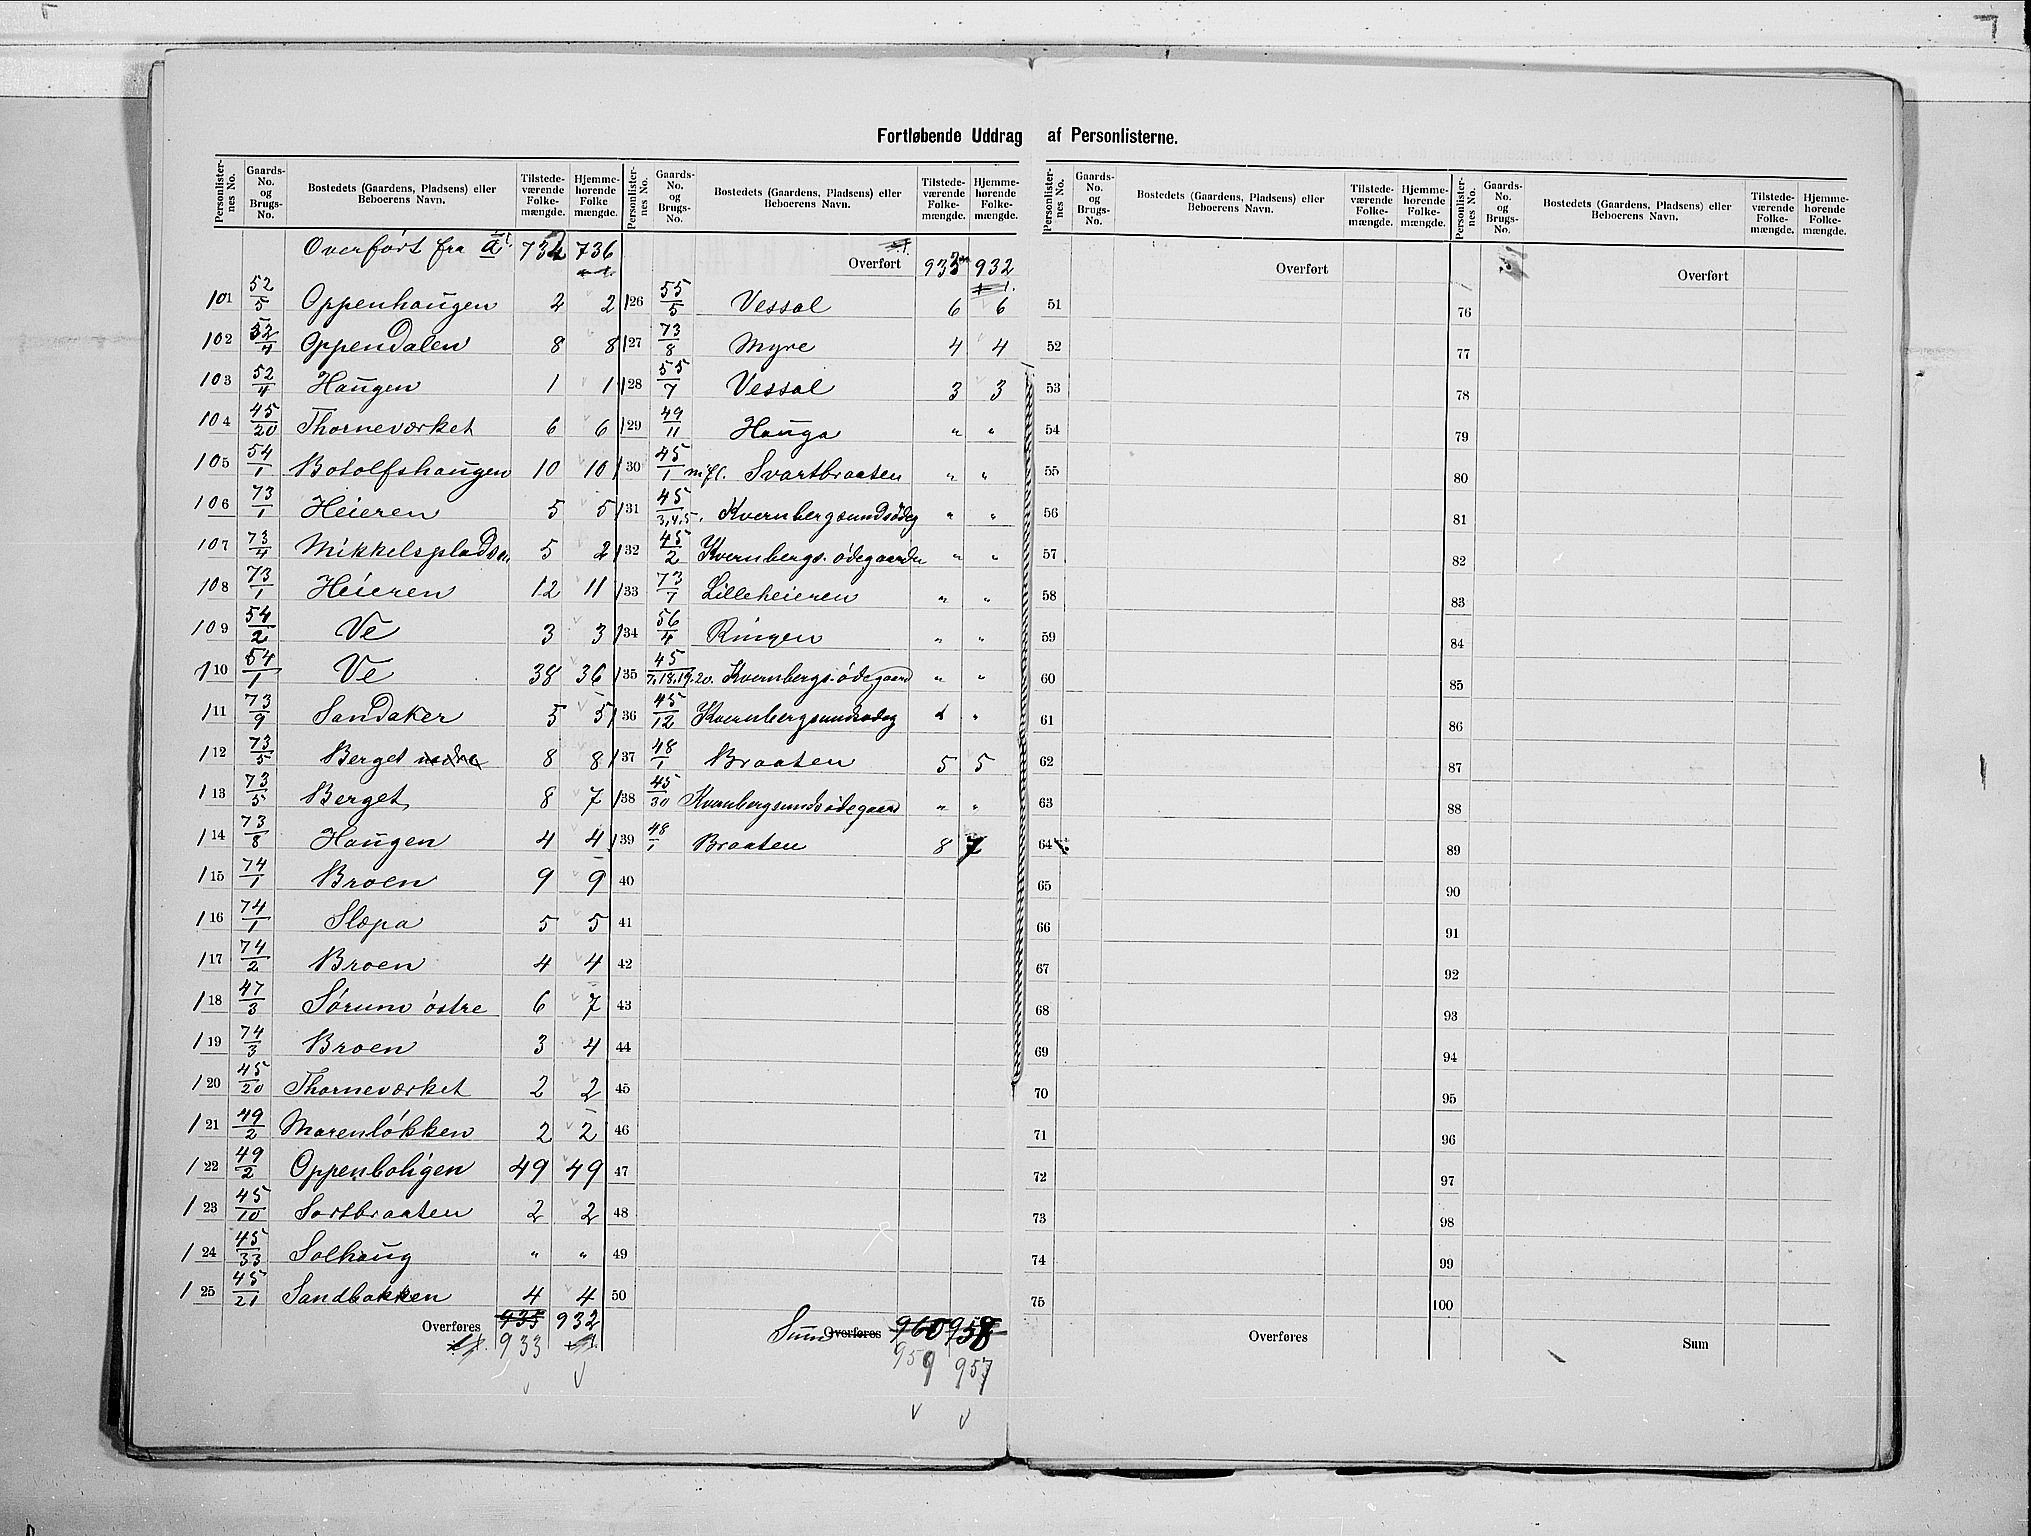 Fortløbende Uddrag af Personlisterne.
Personlister-nes No. Gaards-No. og Brugs-No. Bostedets (Gaardens, Pladsens) eller Beboerens Navn. Tilstede-værende Folke-mængde. Hjemme-hørende Folke mængde.
Overført fra a. 734 736
101 52/5 Oppenhaugen 2 2
102 52/4 Oppendalen 8 8
103 52/4 Haugen 1 1
104 45/20 Thorneværket 6 6
105 54/1 Botolfshaugen 10 10
106 73/1 Heieren 5 5
107 73/4 Mikkelspladsen 5 2
108 73/1 Heieren 12 11
109 54/2 Ve 3 3
110 54/1 Ve 38 36
111 73/9 Sandaker 5 5
112 73/5 Berget nedre 8 8
113 73/5 Berget 8 7
114 73/8 Haugen 4 4
115 74/1 Broen 9 9
116 74/1 Slæpa 5 5
117 74/2 Broen 4 4
118 47/3 Sørum østre 6 7
119 74/3 Broen 3 4
120 45/20 Thorneværket 2 2
121 49/2 Marenløkken 2 2
122 49/2 Oppenboligen 49 49
123 45/10 Sortbraaten 2 2
124 45/33 Solhaug " "
125 45/21 Sandbakken 4 4
Overføres 935 932
933
Personlister-nes No. Gaards-No. og Brugs-No. Bostedets (Gaardens, Pladsens) eller Beboerens Navn. Tilstede-værende Folke-mængde. Hjemme-hørende Folke-mængde.
Overført 933 932
126 55/5 Vessal 6 6
127 73/8 Myre 4 4
128 55/7 Vessal 3 3
129 49/11 Hauga " "
130 45/1 m.fl. Svartbraaten " "
131 45/3,4,5. Kvernbergsundsødeg " "
132 45/2 Kvernbergs. ødegaarden " "
133 73/7 Lilleheieren " "
134 56/4 Ringen " "
135 45/7,18,19.20. Kvernbergs.ødegaard " "
136 45/12 Kvernbergsundsødeg " "
137 48/1 Braaten 5 5
138 45/30 Kvernbergsundsødegaard " "
139 48/1 Braaten 8 7
40
41
42
43
44
45
46
47
48
49
50
Sum Overføres 960 958
959 957
Personlister-nes No. Gaards-No. og Brugs-No. Bostedets (Gaardens, Pladsens) eller Beboerens Navn. Tilstede-værende Folke-mængde. Hjemme-hørende Folke-mængde.
Overført
51
52
53
54
55
56
57
58
59
60
61
62
63
64
65
66
67
68
69
70
71
72
73
74
75
Overføres
Personlister-nes No. Gaards-No. og Brugs-No. Bostedets (Gaardens, Pladsens) eller Beboerens Navn. Tilstede-værende Folke-mængde. Hjemme-hørende Folke-mængde.
Overført
76
77
78
79
80
81
82
83
84
85
86
87
88
89
90
91
92
93
94
95
96
97
98
99
100
Sum